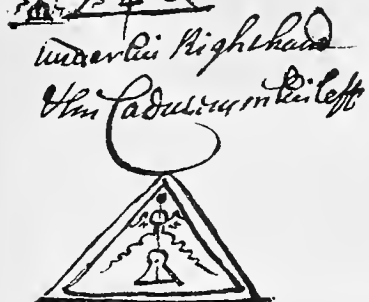 under his Right hand
the Caduceus in his left